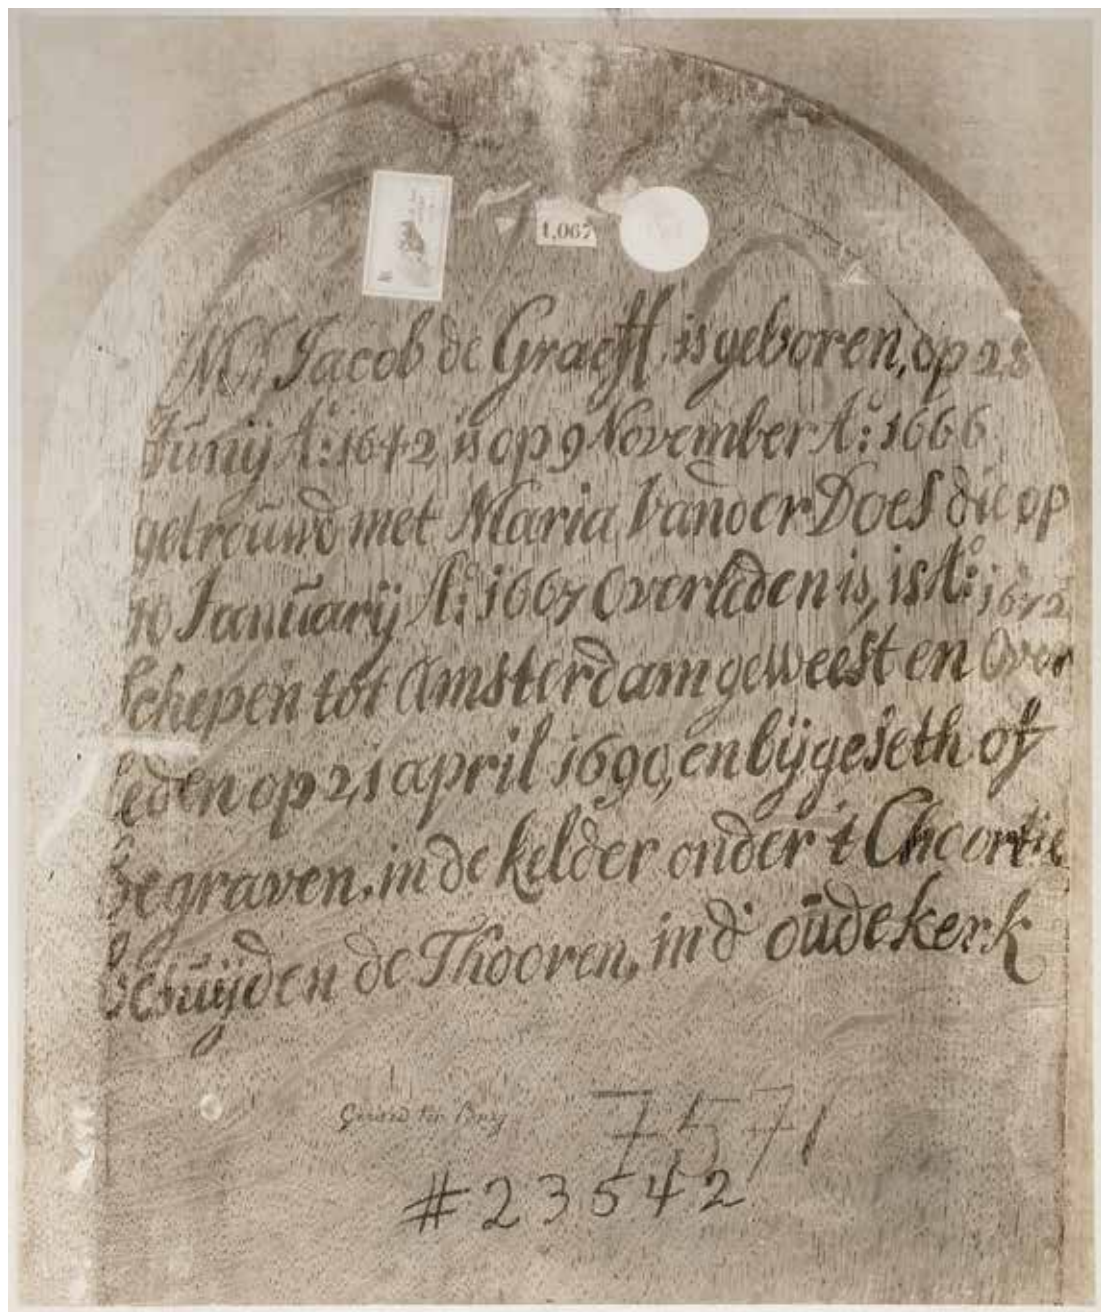 1,067
Mr. Jacob de Graeff is geboren, op 28
Junij Ao: 1642 ñ op 9 November Ao: 1666
getrouwd met Maria Vander Does die op
10 Januarij Ao: 1667 Overleden is, is Ao: 1672
Schepen tot Amsterdam geweest en Over
leden op 21 april 1690, en bijgeseth of
begraven, in de kelder onder 't Choortie
besuijden de Thooren, in d' oude kerk
Gerard ter Borg
7571
#23542